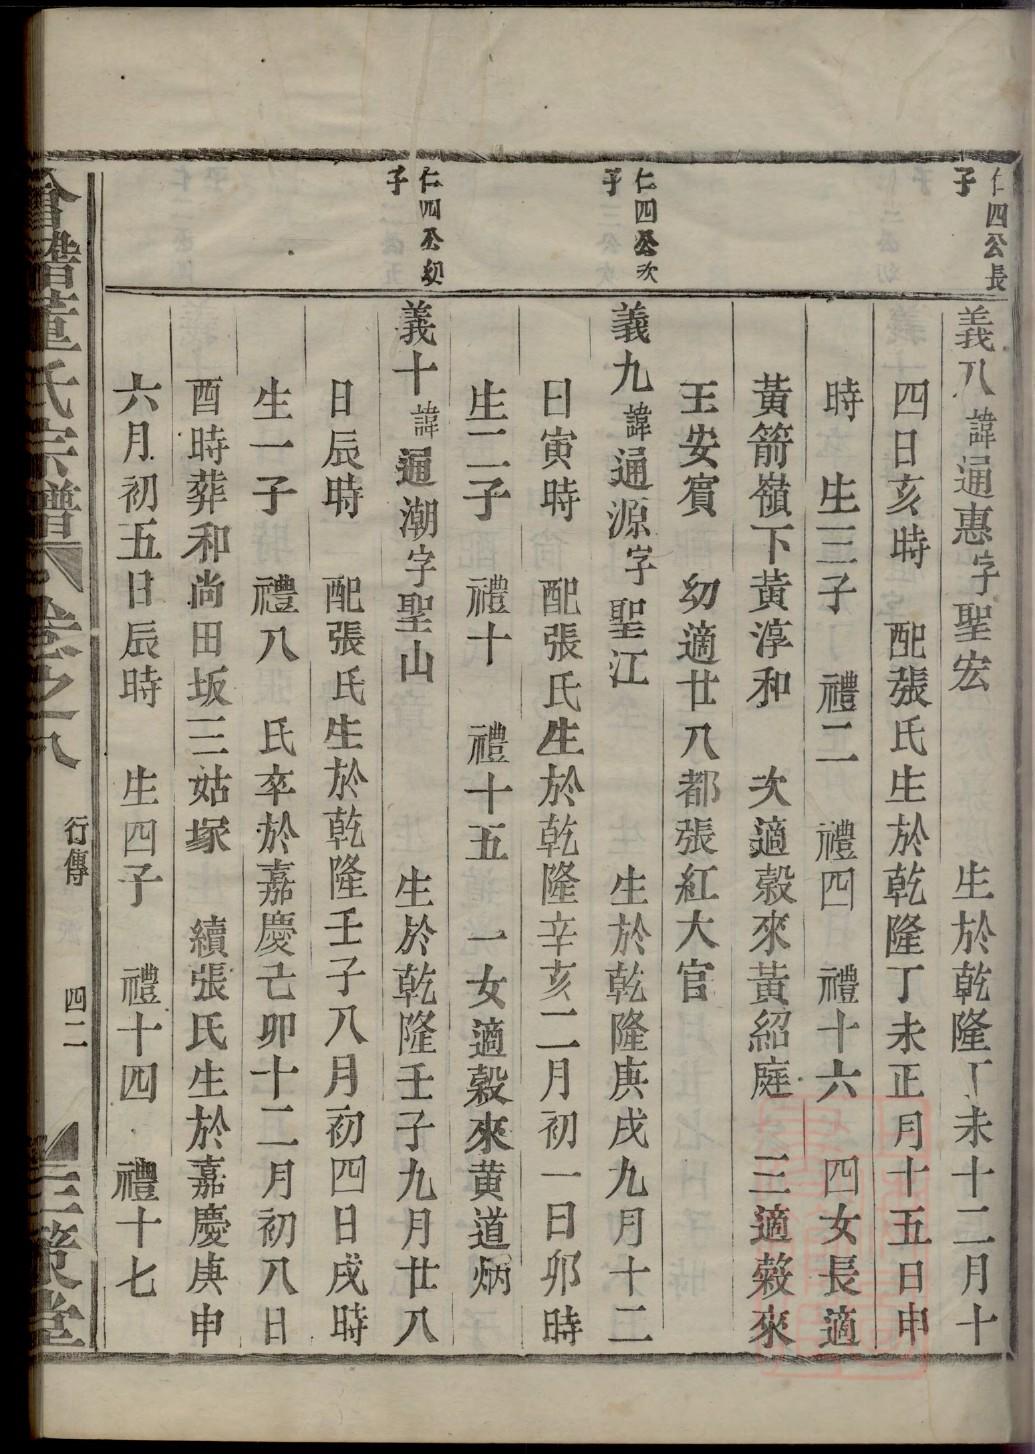 仁四公長
子
義八諱通惠字聖宏 生於乾隆丁未十二月十
四日亥時 配張氏生於乾隆丁未正月十五日申
時 生三子 禮二 禮四 禮十六 四女長適
黃箭嶺下黃淳和 次適穀來黃紹庭 三適穀來
王安賓 幼適廿八都張紅大官
仁四公次
子
義九諱通源字聖江 生於乾隆庚戌九月十二
日寅時 配張氏生於乾隆辛亥二月初一日卯時
生二子 禮十 禮十五 一女適穀來黃道炳
仁四公幼
子
義十諱通潮字聖山 生於乾隆壬子九月廿八
日辰時 配張氏生於乾隆壬子八月初四日戌時
生一子 禮八 氏卒於嘉慶己卯十二月初八日
酉時葬和尚田坂三姑塚 續張氏生於嘉慶庚申
六月初五日辰時 生四子 禮十四 禮十七
會稽董氏宗譜 卷之八 行傳 四二 三策堂